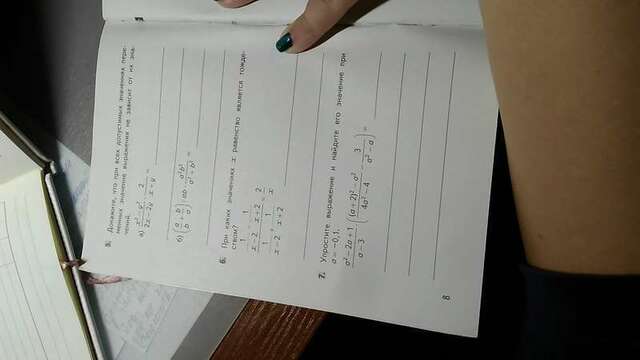 5. Докажите, что при всех допустимых значениях пере-
менных значение выражения не зависит от их зна-
чений.
а) \frac{x² − y²}{2x − 2y} · \frac{2}{x + y} =
б) (\frac{a}{b} + \frac{b}{a}) : ab · \frac{a²b²}{a² + b²} =
6. При каких значениях x равенство является тожде-
ством?
\frac{\frac{1}{x−2} − \frac{1}{x+2}}{\frac{1}{x−2} + \frac{1}{x+2}} = \frac{2}{x}
7. Упростите выражение и найдите его значение при
a = −0,1.
\frac{a² − 2a + 1}{a − 3} · (\frac{(a + 2)² − a²}{4a² − 4} − \frac{3}{a² − a}) =
8